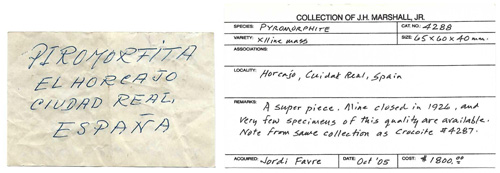 PIROMORFITA
EL HORCAJO
CIUDAD REAL
ESPAÑA
COLLECTION OF J.H. MARSHALL, JR.
SPECIES: PYROMORPHITE CAT. NO. 4288
VARIETY: Xlline mass SIZE: 65x60x40mm.
ASSOCIATIONS:
LOCALITY: Horcajo, Cuidat Real, Spain
REMARKS: A super piece. Mine closed in 1926, and
very few specimens of this quality are available.
Note from same collection as Crocoite #4287.
ACQUIRED: Jordi Favre DATE: Oct '05 COST: $1800.00